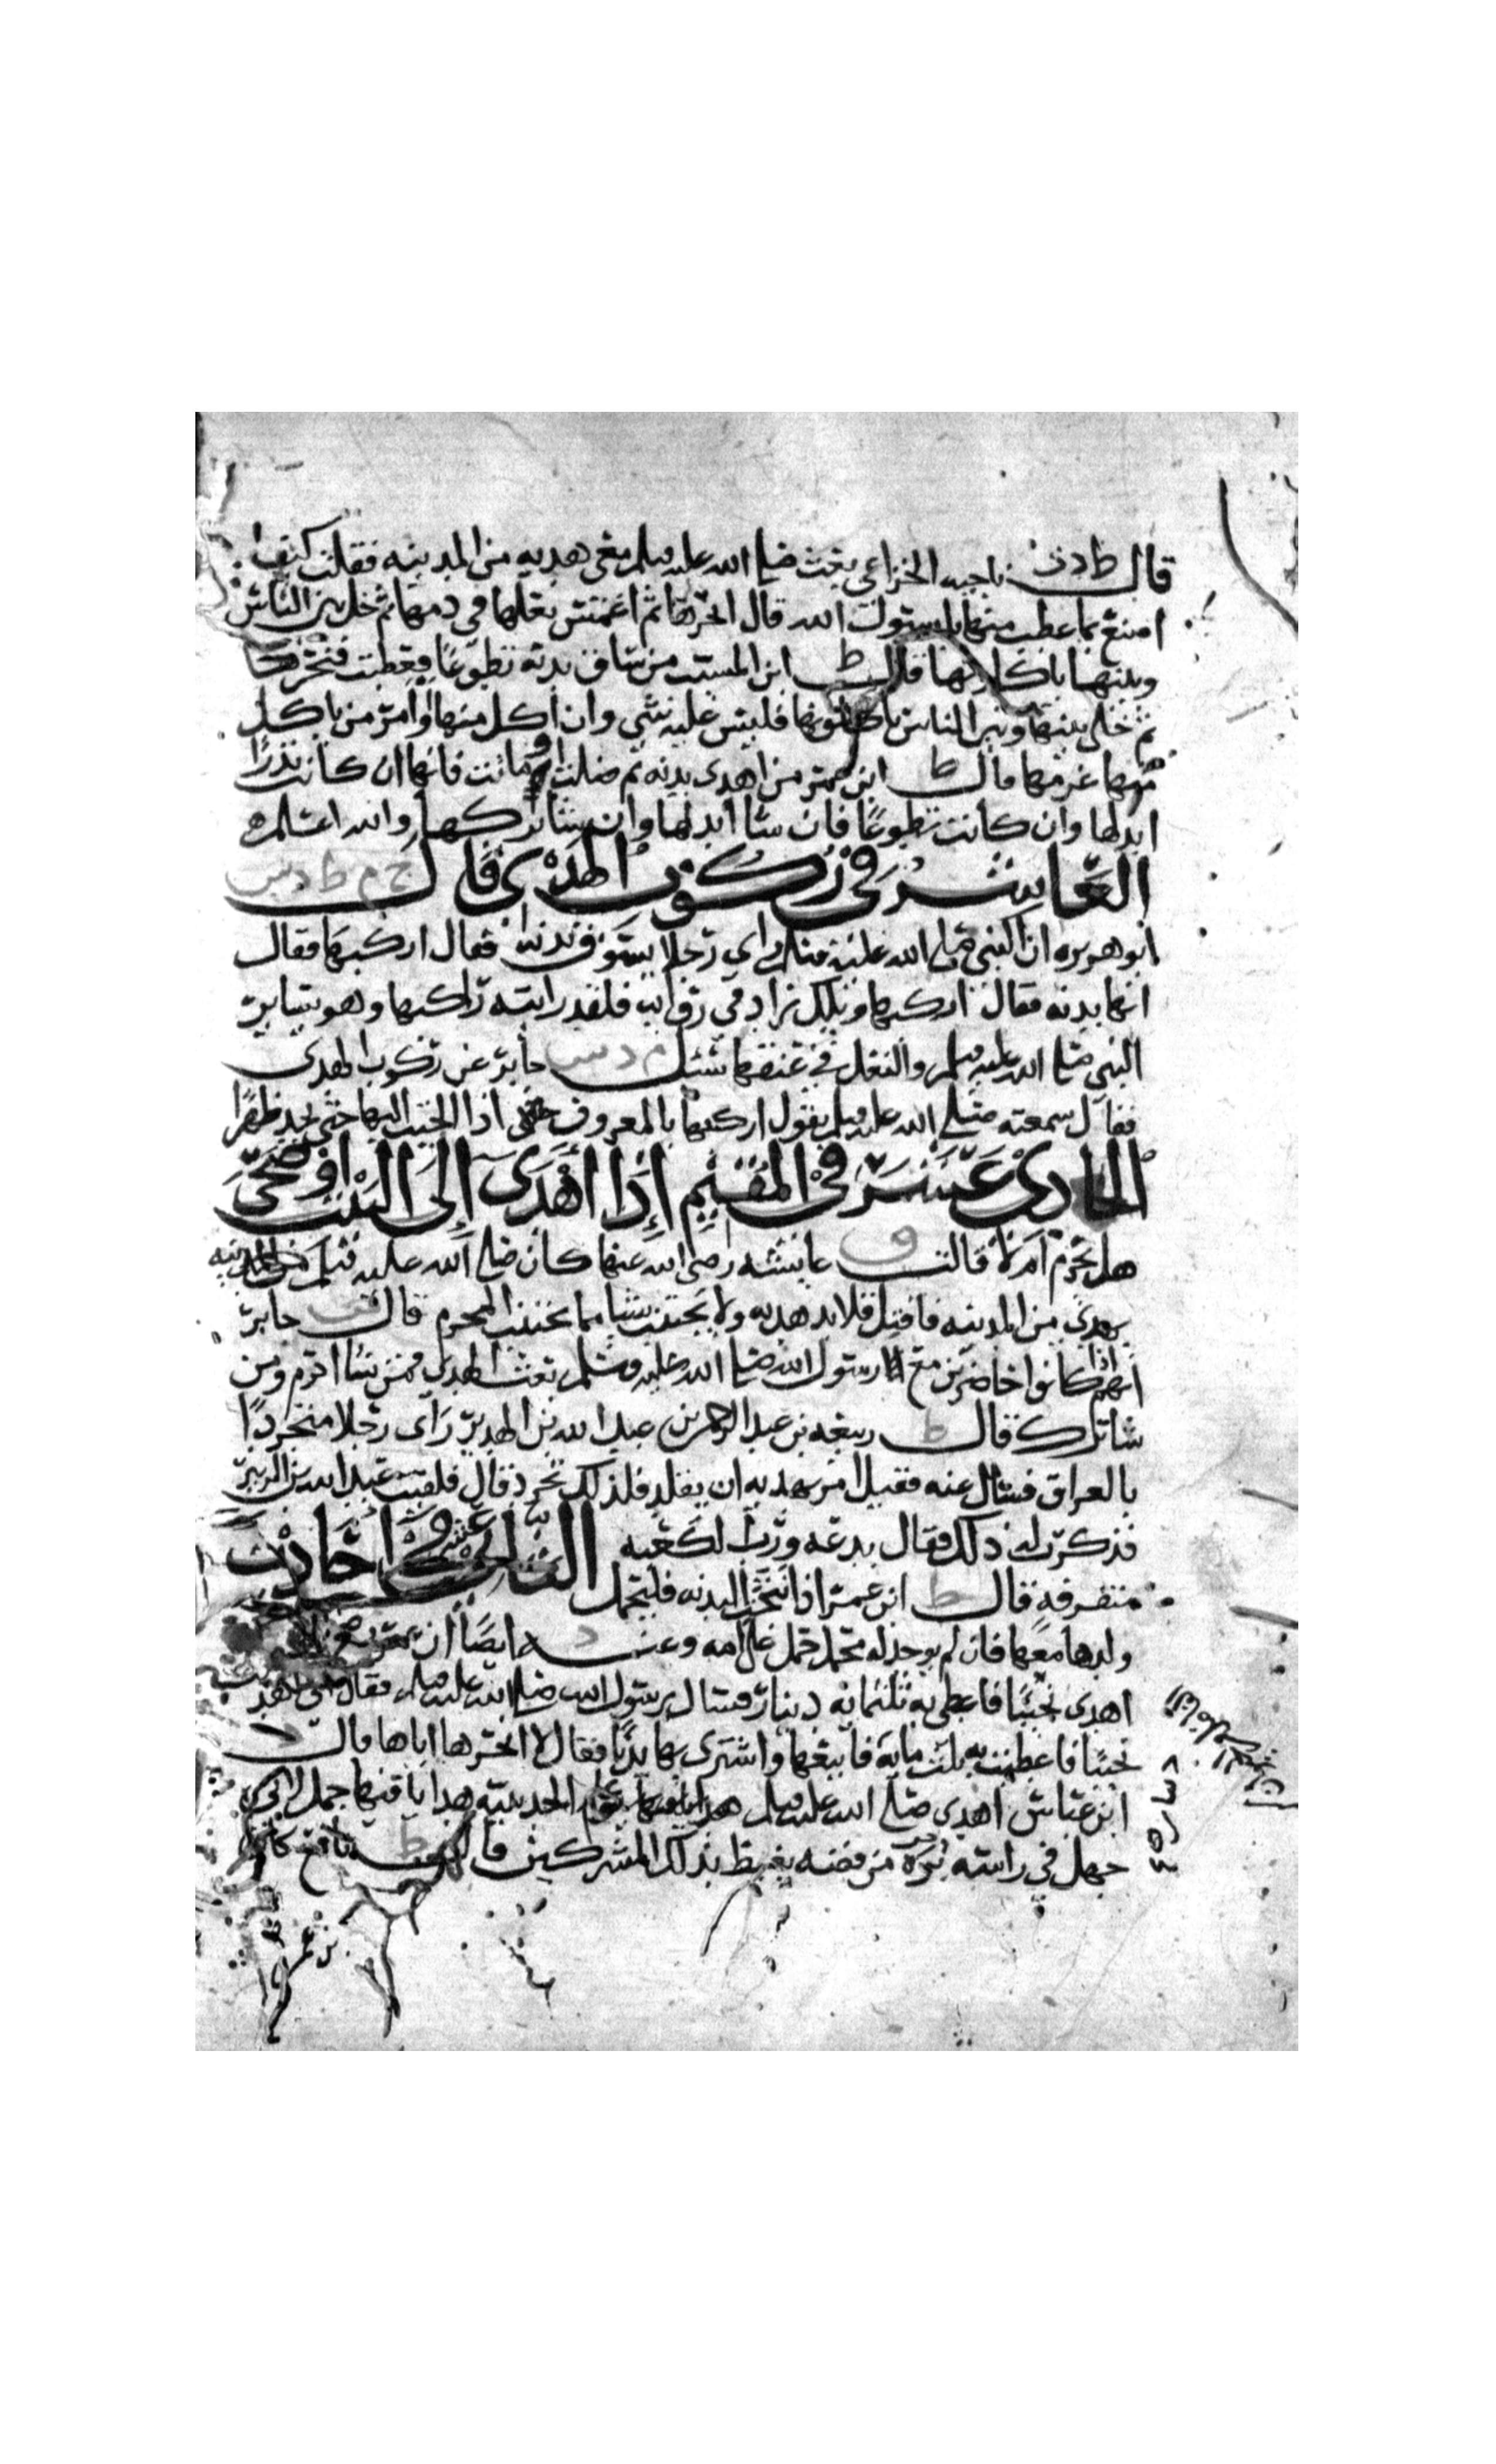 قال ط د ت ناجيه الخزاعي بعث صلى الله عليه وسلم معي هديه من المدينه فقلت كيف
اصنع بما عطب منها يا رسول الله قال انحرها ثم اغمس نعلها في دمها ثم خل بين الناس
وبينها ياكلونها قال ط ابن المسيب من ساق بدنه تطوعا فعطبت فنحرها
ثم خلى بينها وبين الناس ياكلونها فليس عليه شي وان اكل منها او امر من ياكل
منها غرمها قال ط ابن عمر من اهدى بدنه ثم ضلت او ماتت فانها ان كانت نذرا
ابدلها وان كانت تطوعا فان شا ابدلها وان شا تركها والله اعلم
العاشر في ركوب الهدي قال خ م ط د س
ابو هريره ان النبي صلى الله عليه وسلم راى رجلا يسوق بدنه فقال اركبها فقال
انها بدنه فقال اركبها ويلك زاد في روايه فلقد رايته راكبها وهو يساير
النبي صلى الله عليه وسلم والنعل في عنقها سئل م د س جابر عن ركوب الهدي
فقال سمعته صلى الله عليه وسلم يقول اركبها بالمعروف اذا الجيت اليها حتى تجد ظهرا
الحادي عشر في المقيم إذا أهدى إلى البيت او ضحى
هل يحرم ام لا قالت ق عايشه رضي الله عنها كان صلى الله عليه وسلم
يهدي من المدينه فافتل قلايد هديه ولا يجتنب شيا مما يجتنب المحرم قال س جابر
انهم كانوا اذا حاضرين مع رسول الله صلى الله عليه وسلم بعث الهدي فمن شا احرم ومن
شا ترك قال ط ربيعه بن عبد الرحمن بن عبد الله بن الهدير راى رجلا متجردا
بالعراق فسال عنه فقيل امر بهديه ان يقلد فلذلك تجرد قال فلقيت عبد الله بن الزبير
فذكرت له ذلك فقال بدعه ورب الكعبه الثاني عشر في أحاديث
متفرقه قال ط ابن عمر اذا نتجت البدنه فليحمل
ولدها معها فان لم يوجد له محمل حمل على امه وعنه د ايضا ان عمر
اهدى نجيبا فاعطي به ثلثمائه دينار فسال رسول الله صلى الله عليه وسلم فقال اني اهديت
نجيبا فاعطيت به ثلث مايه فابيعها واشتري بها بدنا فقال لا انحرها اياها قال د
ابن عباس اهدى صلى الله عليه وسلم عام الحديبيه هدايا فيها جمل لابي
جهل في راسه بره من فضه يغيظ بذلك المشركين قال ط نافع كان
بن عمر